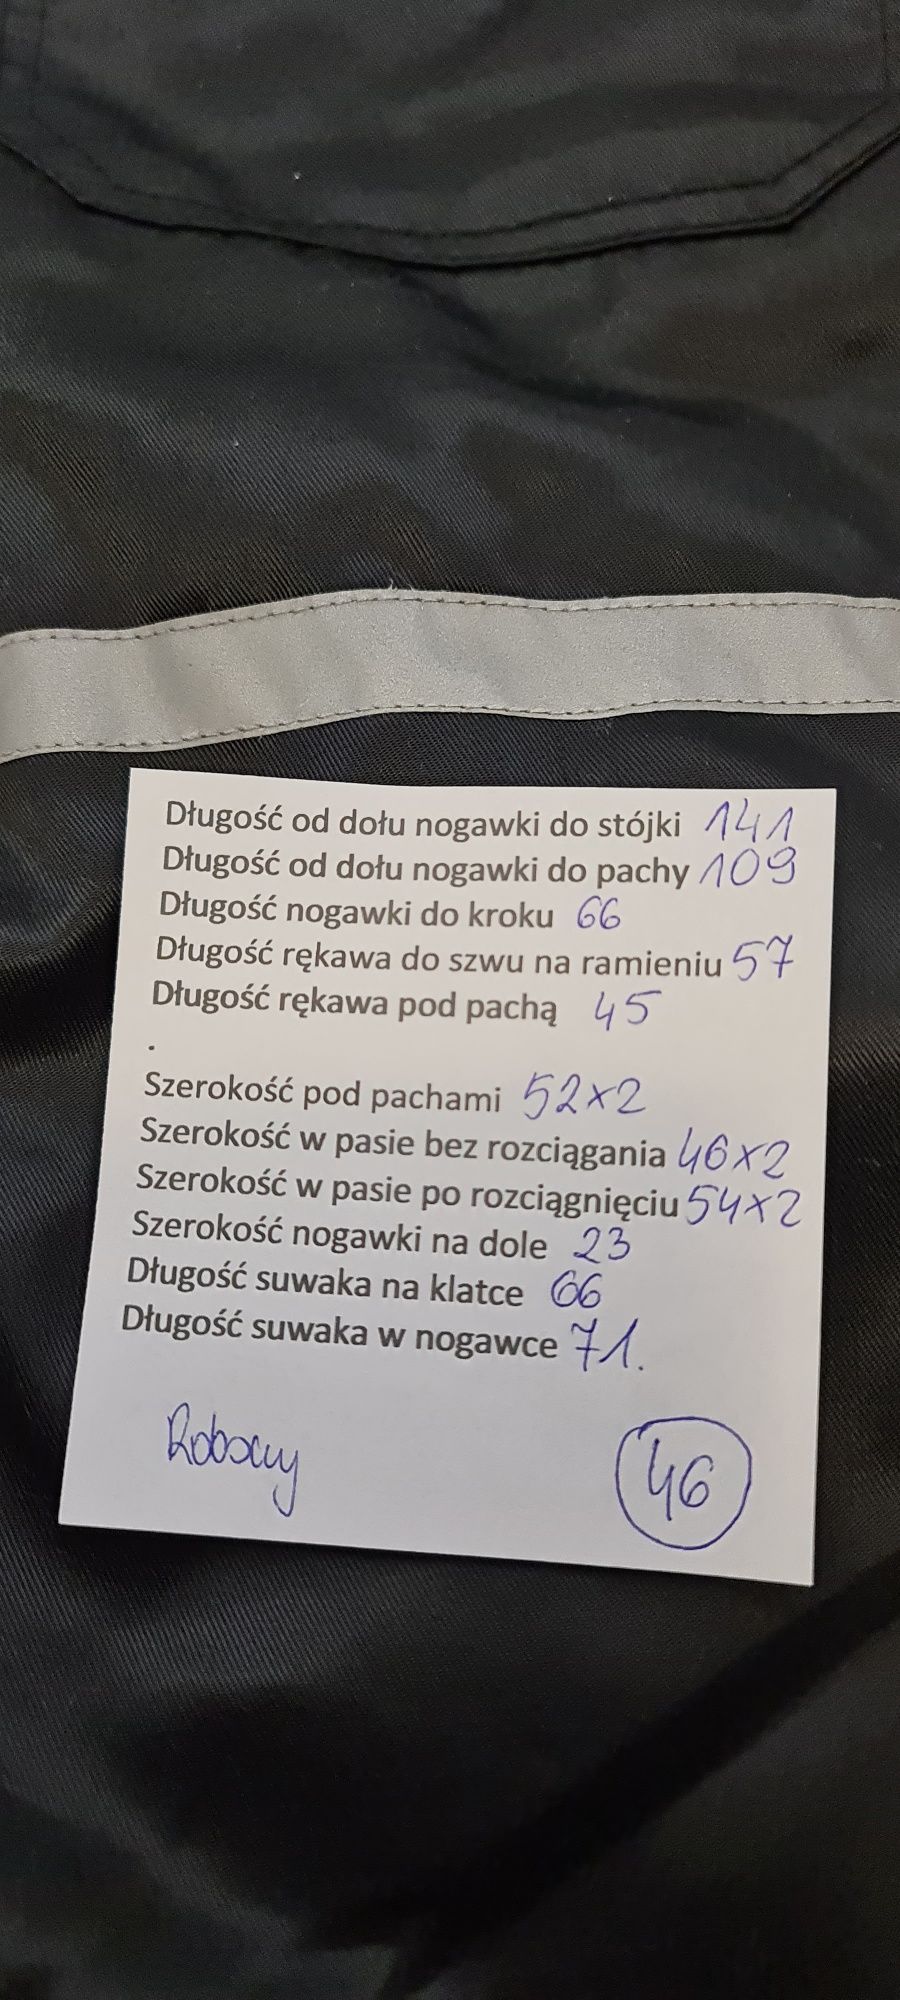 Długość od dołu nogawki do stójki 141
Długość od dołu nogawki do pachy 109
Długość nogawki do kroku 66
Długość rękawa do szwu na ramieniu 57
Długość rękawa pod pachą 45
.
Szerokość pod pachami 52x2
Szerokość w pasie bez rozciągania 46x2
Szerokość w pasie po rozciągnięciu 54x2
Szerokość nogawki na dole 23
Długość suwaka na klatce 66
Długość suwaka w nogawce 71.
Roboczy
46